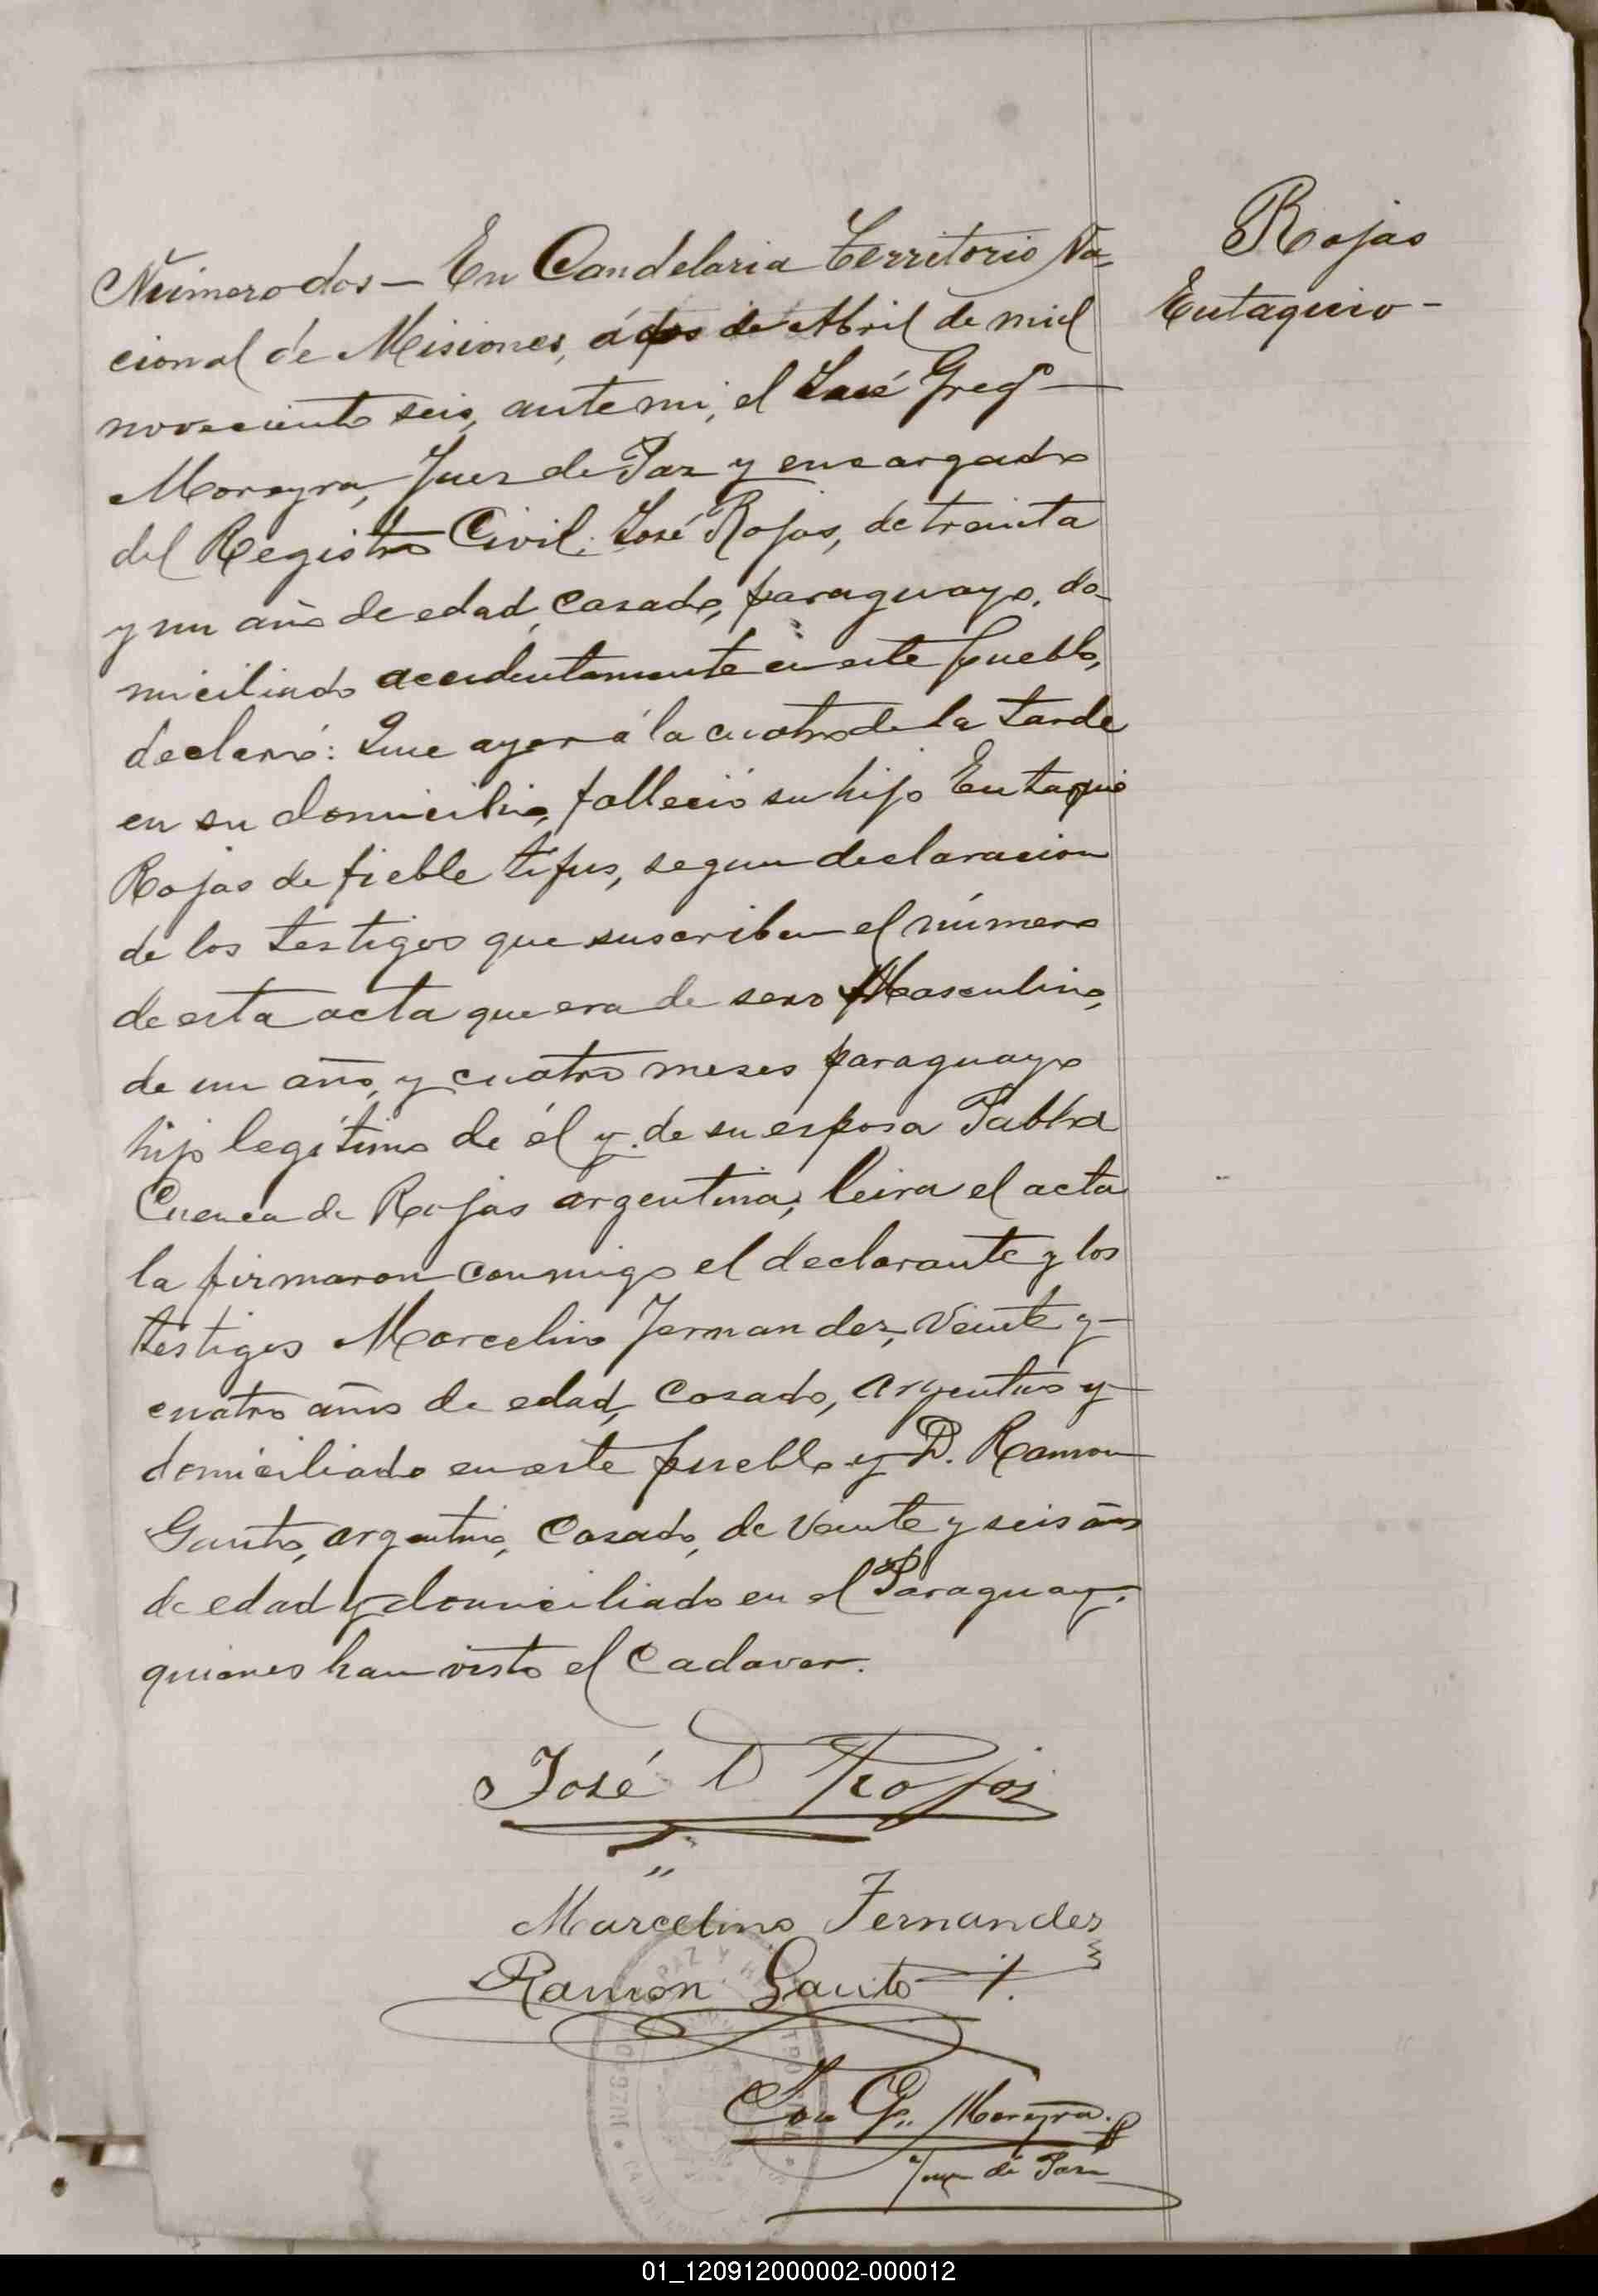 Rojas
Eutaquio -
Número dos — En Candelaria Territorio Na-
cional de Misiones, á dos de Abril de mil
novecientos seis, ante mi, el José Greg°
Moreyra, Juez de Paz y encargado
del Registro Civil. José Rojas, de treinta
y un año de edad, casado, paraguayo, do-
miciliado accidentamente en este pueblo,
declaró: Que ayer á la cuatro de la tarde
en su domicilio, falleció su hijo Eutaquio
Rojas de fieble tifus, segun declaracion
de los testigos que suscriben el número
de esta acta que era de sexo Masculino,
de un año, y cuatro meses paraguayo
hijo legítimo de él y de su esposa Pabla
Cuenca de Rojas argentina, leira el acta
la firmaron conmigo el declarante y los
testigos Marcelino Fernandez, veinte y
cuatro años de edad, casado, argentino y
domiciliado en este pueblo y D. Ramon
Gauto, argentino, casado, de veinte y seis años
de edad y domiciliado en el Paraguay.
quienes han visto el cadaver.
José D Rojas
Marcelino Fernandez
Ramón Gauto
José G. Moreyra
Juez de Paz
JUZGADO PAZ Y
01_120912000002-000012